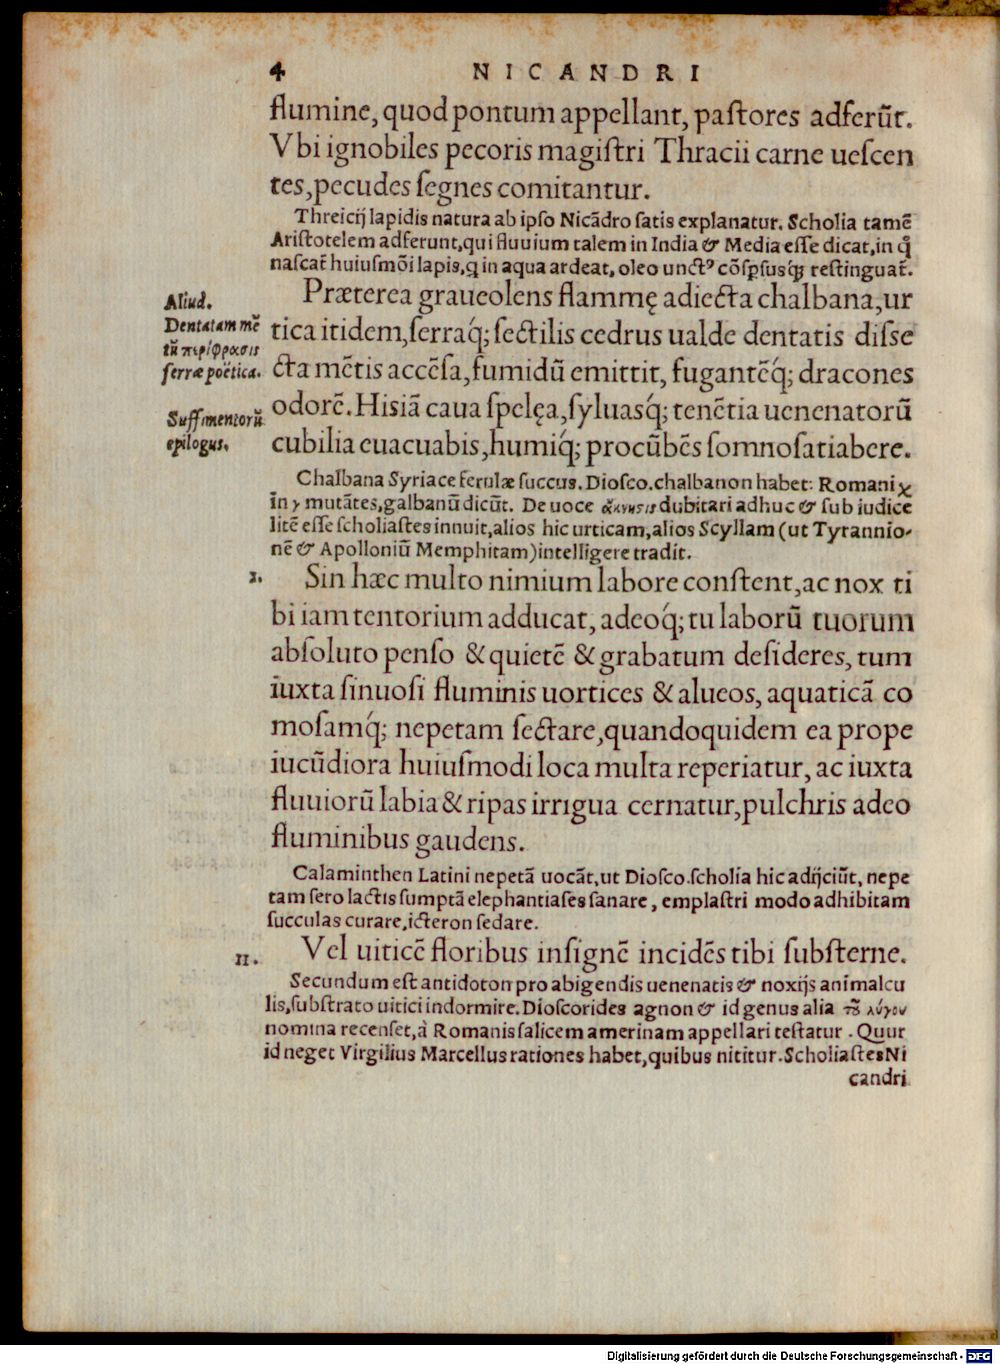 4 NICANDRI
flumine, quod pontum appellant, paſtores adferūt.
Vbi ignobiles pecoris magiſtri Thracii carne ueſcen
tes, pecudes ſegnes comitantur.
Threicij lapidis natura ab ipſo Nicādro ſatis explanatur. Scholia tamē
Ariſtotelem adferunt, qui fluuium talem in India & Media eſſe dicat, in q̃
naſcat̃ huiuſmōi lapis, q in aqua ardeat, oleo unctꝰ cōſꝑſusq́ꝫ reſtinguat̃.
Aliud.
Dentatam mē
tū περίφρασις
ſerræ poëtica.
Præterea graueolens flammę adiecta chalbana, ur
tica itidem, ſerraq́; ſectilis cedrus ualde dentatis diſſe
cta mētis accēſa, fumidū emittit, fugantēq́; dracones
Suffimentorū
epilogus.
odorē. Hisiā caua ſpelęa, ſyluasq́; tenētia uenenatorū
cubilia euacuabis, humiq́; procūbēs ſomno ſatiabere.
Chalbana Syriace ferulæ ſuccus. Dioſco. chalbanon habet: Romani χ
in γ mutātes, galbanū dicūt. De uoce ἄκνησις dubitari adhuc & ſub iudice
litē eſſe ſcholiaſtes innuit, alios hic urticam, alios Scyllam (ut Tyrannio-
nē & Apolloniū Memphitam) intelligere tradit.
1.
Sin hæc multo nimium labore conſtent, ac nox ti
bi iam tentorium adducat, adeoq́; tu laborū tuorum
abſoluto penſo & quietē & grabatum deſideres, tum
iuxta ſinuoſi fluminis uortices & alueos, aquaticā co
moſamq́; nepetam ſectare, quandoquidem ea prope
iucūdiora huiuſmodi loca multa reperiatur, ac iuxta
fluuiorū labia & ripas irrigua cernatur, pulchris adeo
fluminibus gaudens.
Calaminthen Latini nepetā uocāt, ut Dioſco. ſcholia hic adijciūt, nepe
tam ſero lactis ſumptā elephantiaſes ſanare, emplaſtri modo adhibitam
ſucculas curare, icteron ſedare.
11.
Vel uiticē floribus inſignē incidēs tibi ſubſterne.
Secundum eſt antidoton pro abigendis uenenatis & noxijs animalcu
lis, ſubſtrato uitici indormire. Dioſcorides agnon & id genus alia τȣ͂ λύγου
nomina recenſet, à Romanis ſalicem amerinam appellari teſtatur. Quur
id neget Virgilius Marcellus rationes habet, quibus nititur. Scholiaſtes Ni
candri
Digitalisierung gefördert durch die Deutsche Forschungsgemeinschaft - DFG